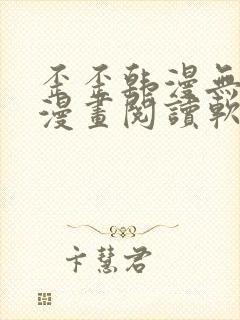 歪歪韩漫無
漫畫閱讀軟
卞慧君